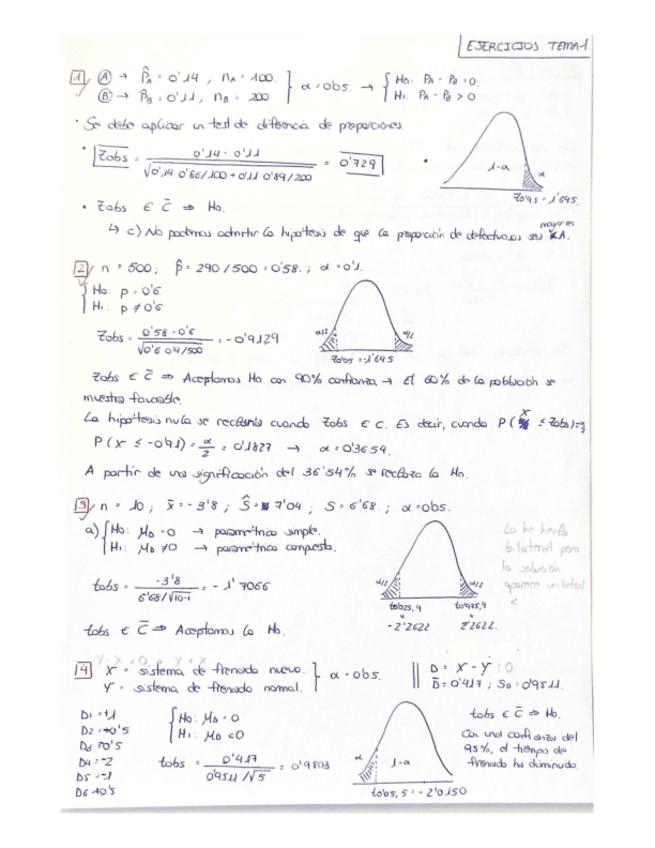 EJERCICIOS TEMA-1
1 A → P̂A = 0'14 , nA = 100. } α = 0'05. → { H0: PA - PB = 0.
B → P̂B = 0'11 , nB = 200 H1: PA - PB > 0
· Se debe aplicar un test de diferencia de proporciones.
· Zobs = 0'14 - 0'11 / √0'14·0'86/100 + 0'11·0'89/200 = 0'729
1-α α
Z0'95 = 1'645.
· Zobs ∈ C̄ ⇒ H0.
mayor en
↳ c) No podemos admitir la hipótesis de que la proporción de defectuosos sea A.
2 n = 500; p̂ = 290/500 = 0'58. ; α = 0'1.
{ H0: p = 0'6
H1: p ≠ 0'6
Zobs = 0'58 - 0'6 / √0'6·0'4/500 = -0'9129
α/2 α/2
Z0'05 = -1'645
Zobs ∈ C̄ ⇒ Aceptamos H0 con 90% confianza → El 60% de la población se
muestra favorable.
La hipótesis nula se rechaza cuando Zobs ∈ C. Es decir, cuando P(X ≤ Zobs) = α/2
P(X ≤ -0'91) = α/2 = 0'1827 → α = 0'3654.
A partir de una significación del 36'54% se rechaza la H0.
3 n = 10 ; x̄ = -3'8 ; Ŝ = 7'04 ; S = 6'68 ; α = 0'05.
a) { H0: μD = 0 → paramétrica simple.
H1: μD ≠ 0 → paramétrica compuesta.
La he hecho
bilateral pero
la solución
aparece unilateral
<
tobs = -3'8 / 6'68/√10-1 = -1'7066
α/2 α/2
t0'025,9 t0'975,9
-2'2622 2'2622.
tobs ∈ C̄ ⇒ Aceptamos la H0.
4 X = sistema de frenado nuevo. } α = 0'05. || D = X - Y
Y = sistema de frenado normal. D̄ = 0'417 ; SD = 0'9511.
D1 = +1
D2 = +0'5
D4 = -2
D5 = -1
D6 +0'5
{ H0: μD = 0
H1: μD < 0
tobs = 0'417 / 0'9511/√5 = 0'9803
α 1-α
t0'05, 5 = -2'0150
tobs ∈ C̄ ⇒ H0.
Con una confianza del
95%, el tiempo de
frenado ha disminuido.